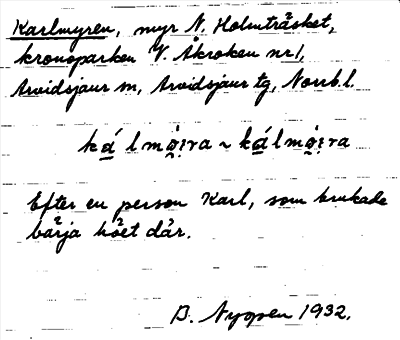 Karlmyren, myr N. Holmträsket,
kronoparken V. Åkroken nr 1,
Arvidsjaur sn, Arvidsjaur tg, Norrb. l.
Efter en person Karl, som brukade
bärja höet där.
1932.